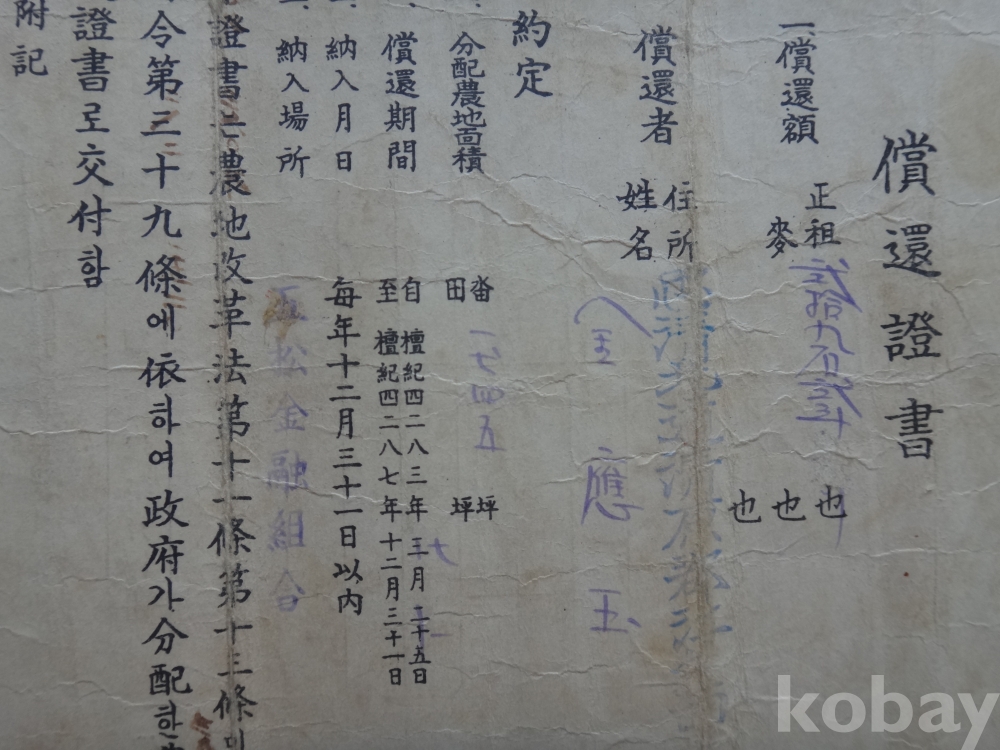 償還證書
一、償還額 正租 貳拾九石貳斗 也
麥 也
也
償還者 住所
姓名 金應玉
約定
分配農地面積 畓 一七四五 坪
田 坪
償還期間 自 檀紀四二八三年三月二十五日
至 檀紀四二八七年十二月三十一日
納入月日 每年十二月三十一日以內
納入場所 五松金融組合
證書는 農地改革法第十一條第十三條
令第三十九條에依하여政府가分配한
證書로交付함
附記
kobay